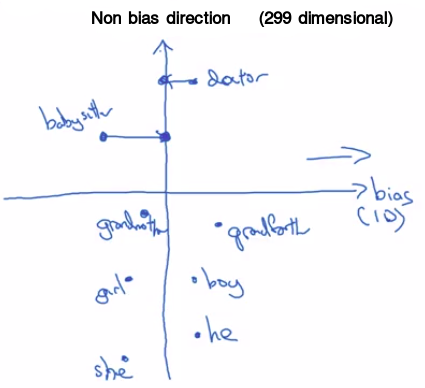 Non bias direction (299 dimensional)
doctor
babysitter
bias
(1D)
grandmother
grandfath
girl
boy
he
she